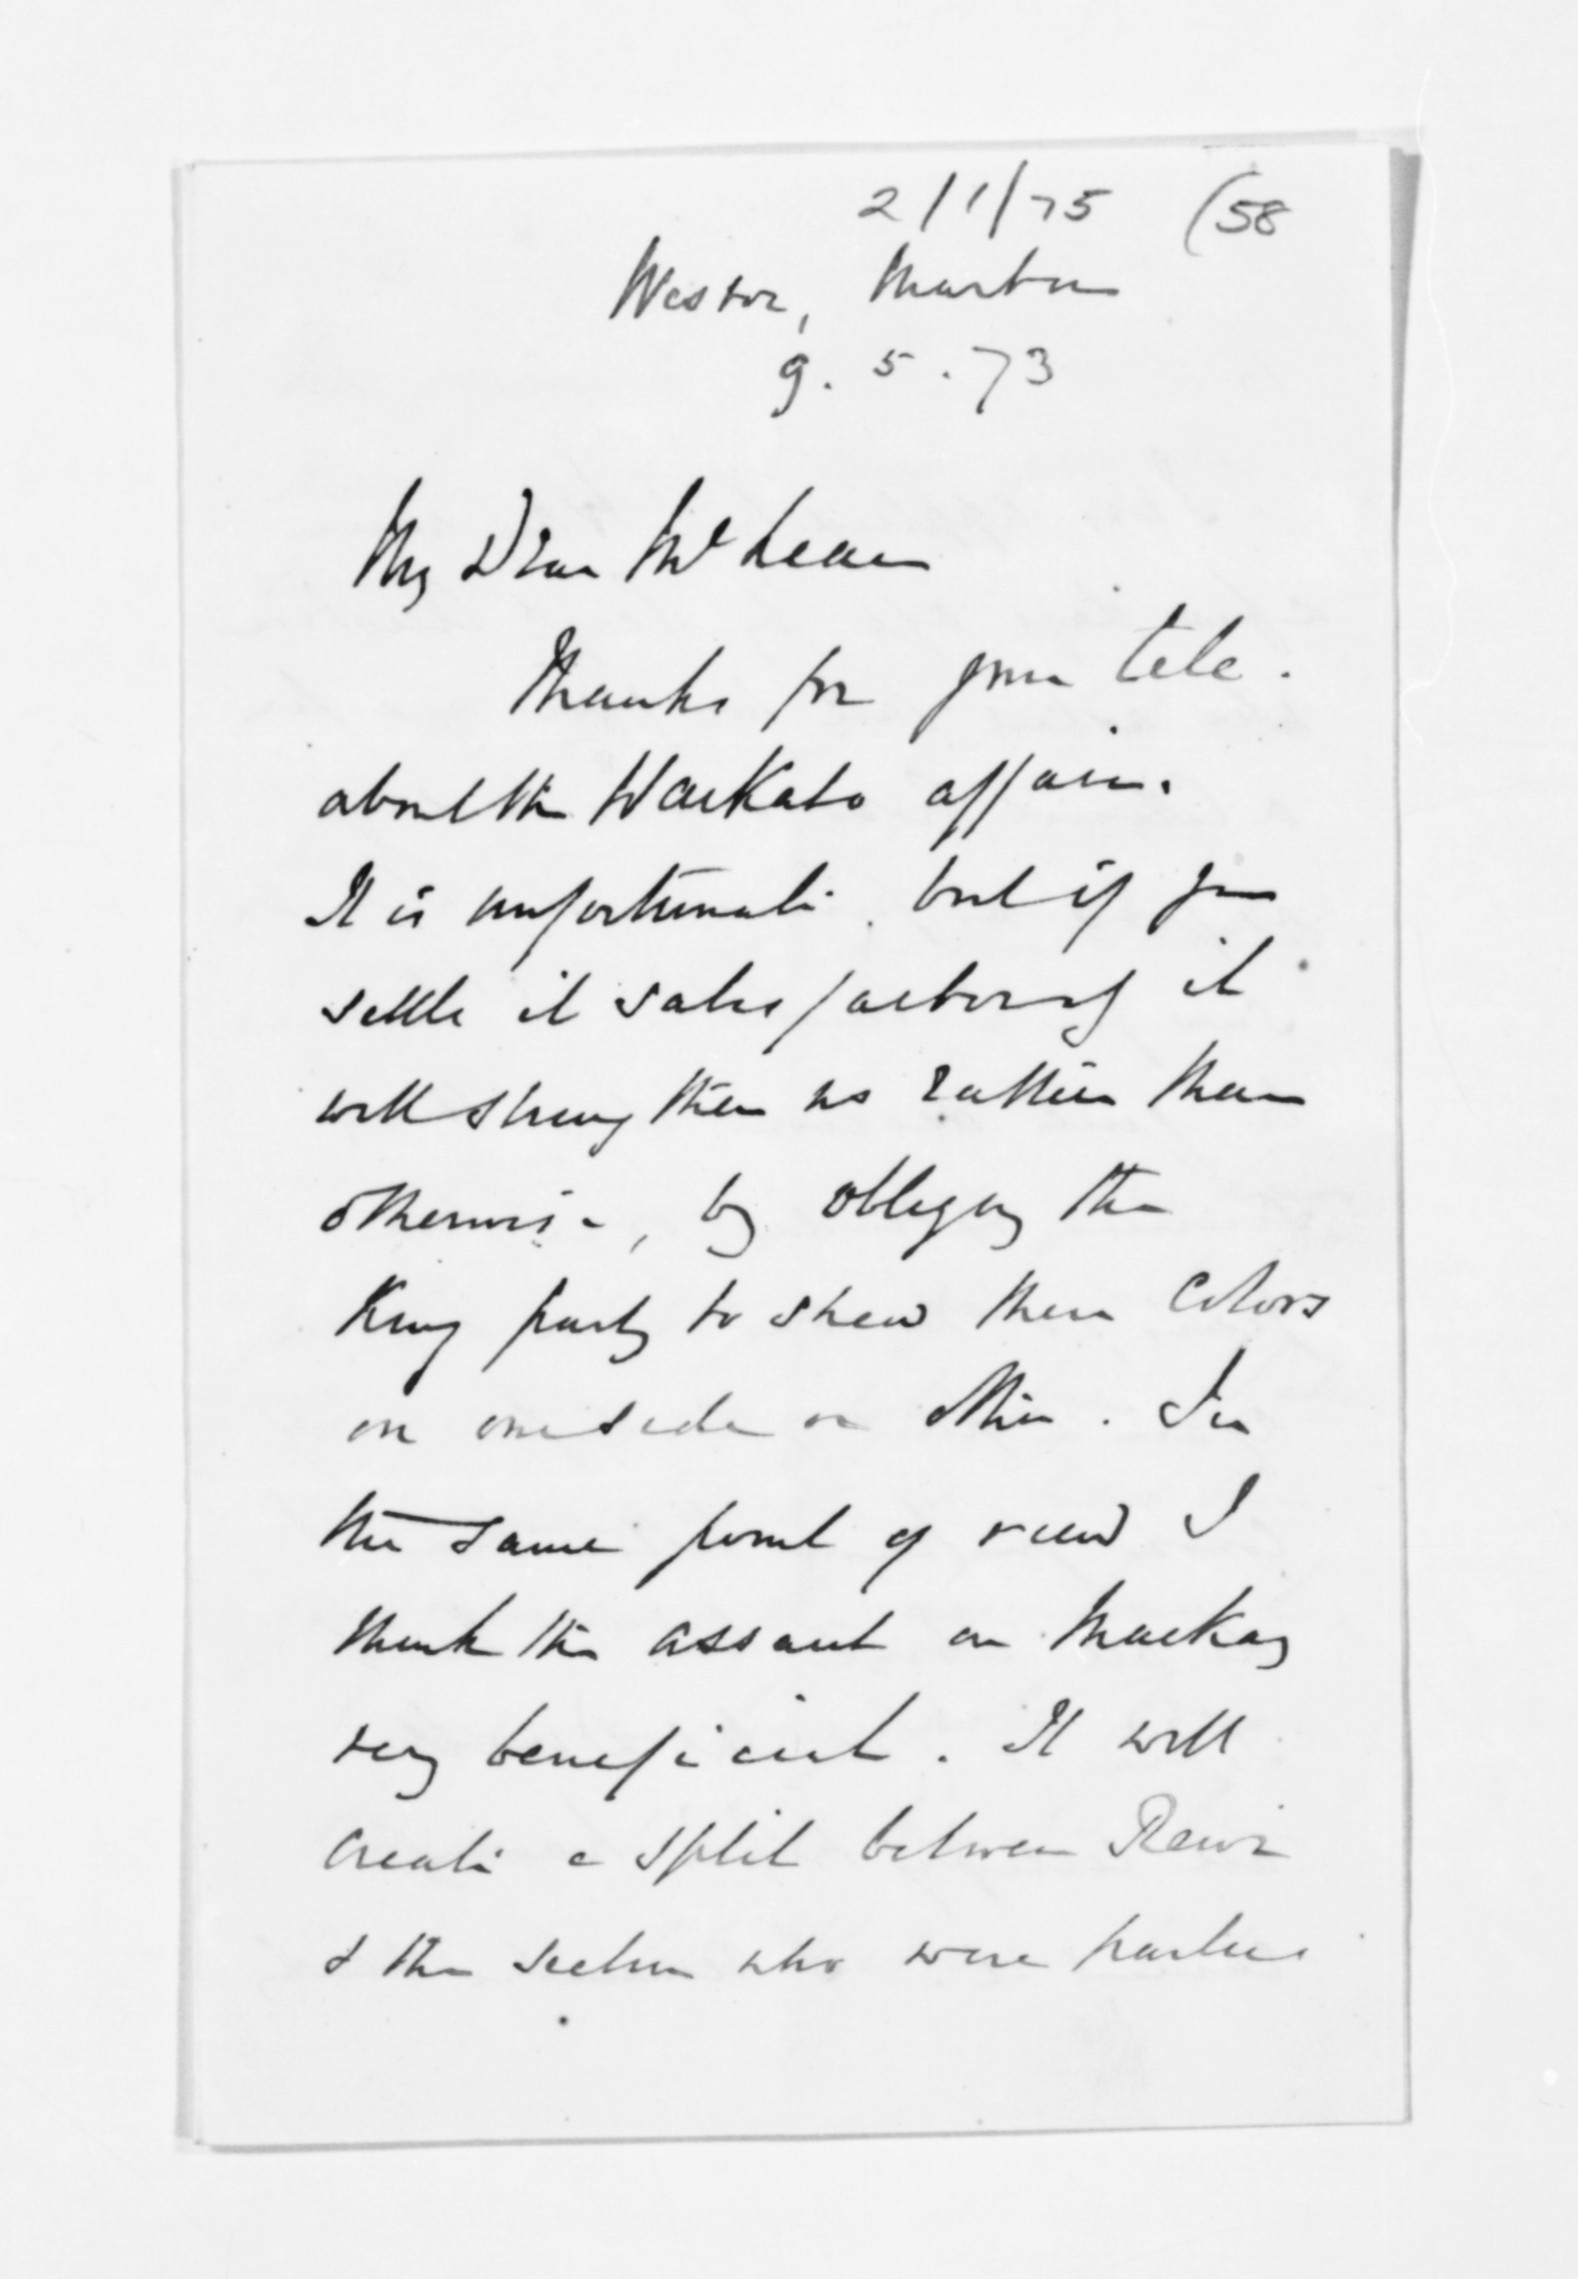 2/1/75 (58
Westoe, Marton
9.5.73
My Dear McLean
Thanks for your tele.
about the Waikato affair.
It is unfortunate. but if you
settle it satisfactorily it
will strengthen us rather than
otherwise, by obliging the
King party to shew their Colors
on one side or other. In
the same point of view I
think the assault on Mackay
very beneficial. It will
create a split between Rewi
& the section who were parties